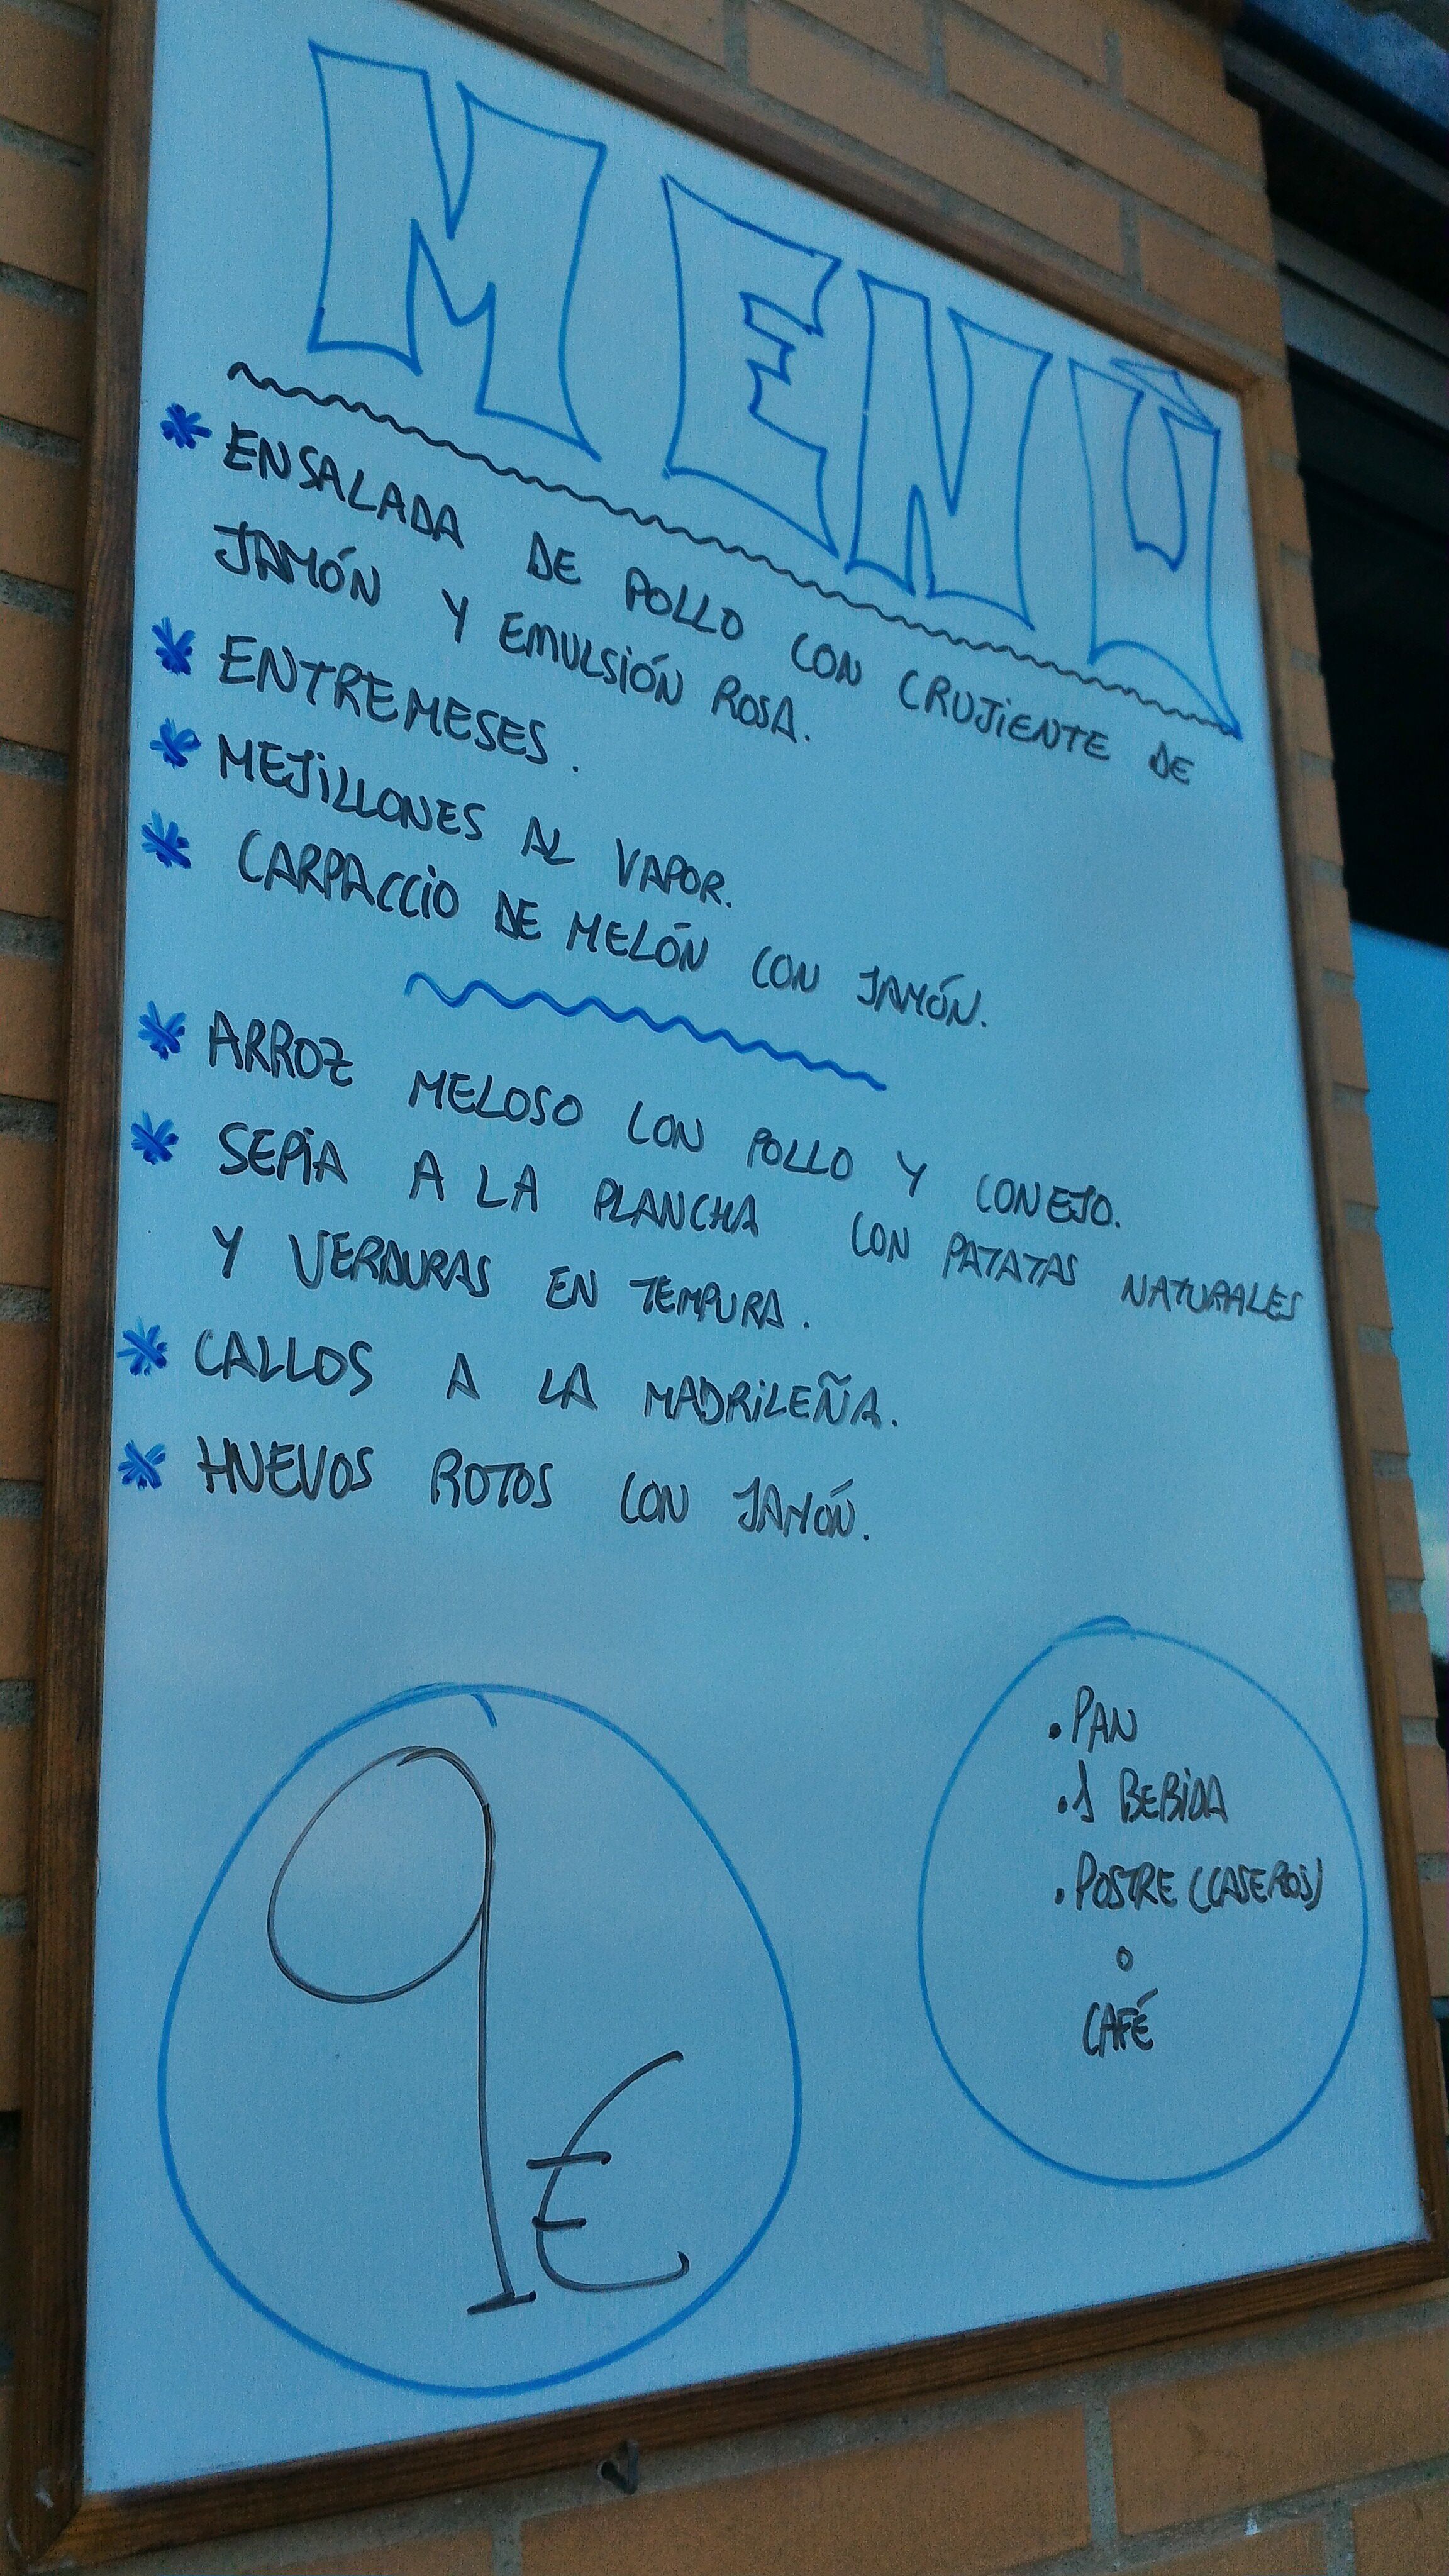 MENÚ
* ENSALADA DE POLLO CON CRUJIENTE DE
JAMÓN Y EMULSIÓN ROSA.
* ENTREMESES.
* MEJILLONES AL VAPOR.
* CARPACCIO DE MELÓN CON JAMÓN.
* ARROZ MELOSO CON POLLO Y CONEJO.
* SEPIA A LA PLANCHA CON PATATAS NATURALES
Y VERDURAS EN TEMPURA.
* CALLOS A LA MADRILEÑA.
* HUEVOS ROTOS CON JAMÓN.
9€
. PAN
. 1 BEBIDA
. POSTRE (CASEROS)
O
CAFÉ